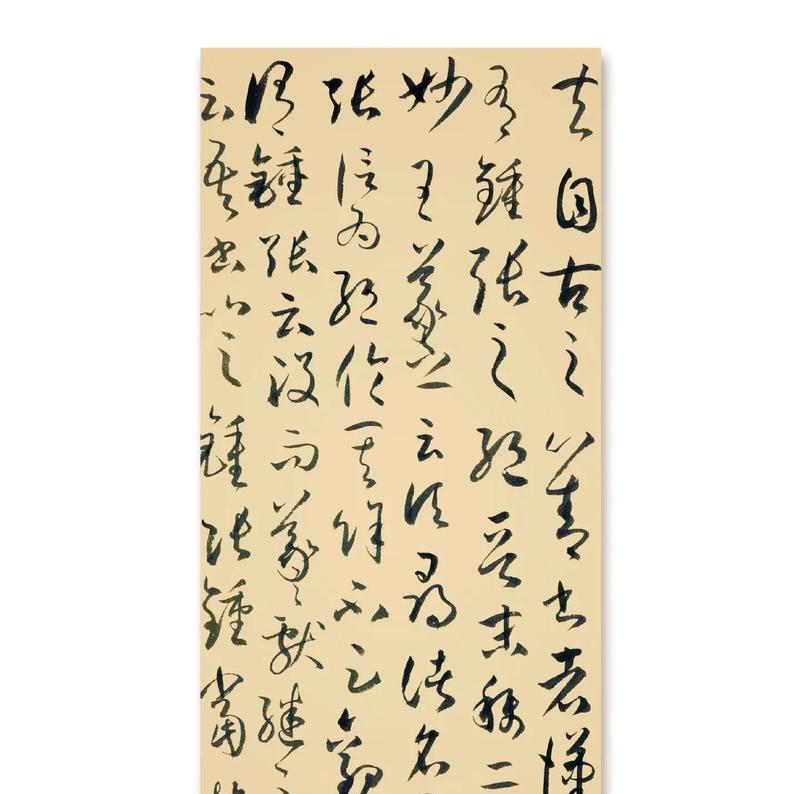 夫自古之善書者漢
有鍾張之絕晉末稱二
妙王羲之云頃尋諸名
張信為絕倫其餘不足觀
謂鍾張云沒而羲獻繼之
云吾書比之鍾張鍾當